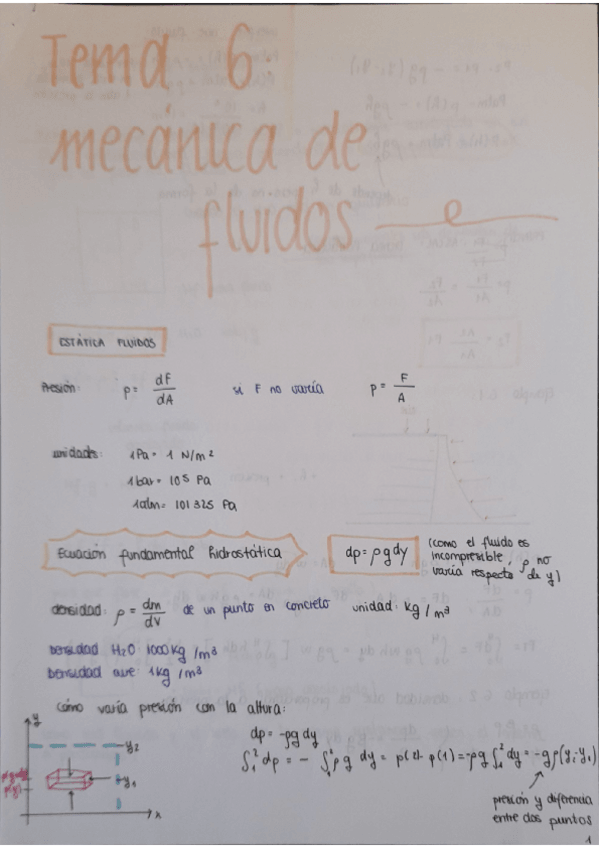 Tema 6:
mecánica de
fluidos
ESTÁTICA FLUIDOS
Presión: p = dF/dA si F no varía p = F/A
unidades: 1 Pa = 1 N/m²
1 bar = 10⁵ Pa
1 atm = 101325 Pa
Ecuación fundamental hidrostática dp = ρ g dy (como el fluido es
incompresible, ρ no
varía respecto de y)
densidad: ρ = dm/dV de un punto en concreto unidad: kg/m³
Densidad H₂O: 1000 kg/m³
densidad aire: 1 kg/m³
cómo varía presión con la altura:
dp = -ρg dy
∫₁² dp = - ∫₁² ρ g dy = p(2) - p(1) = -ρg ∫₁² dy = -gρ(y₂-y₁)
y
y₂
y₁
x
presión y diferencia
entre dos puntos
1